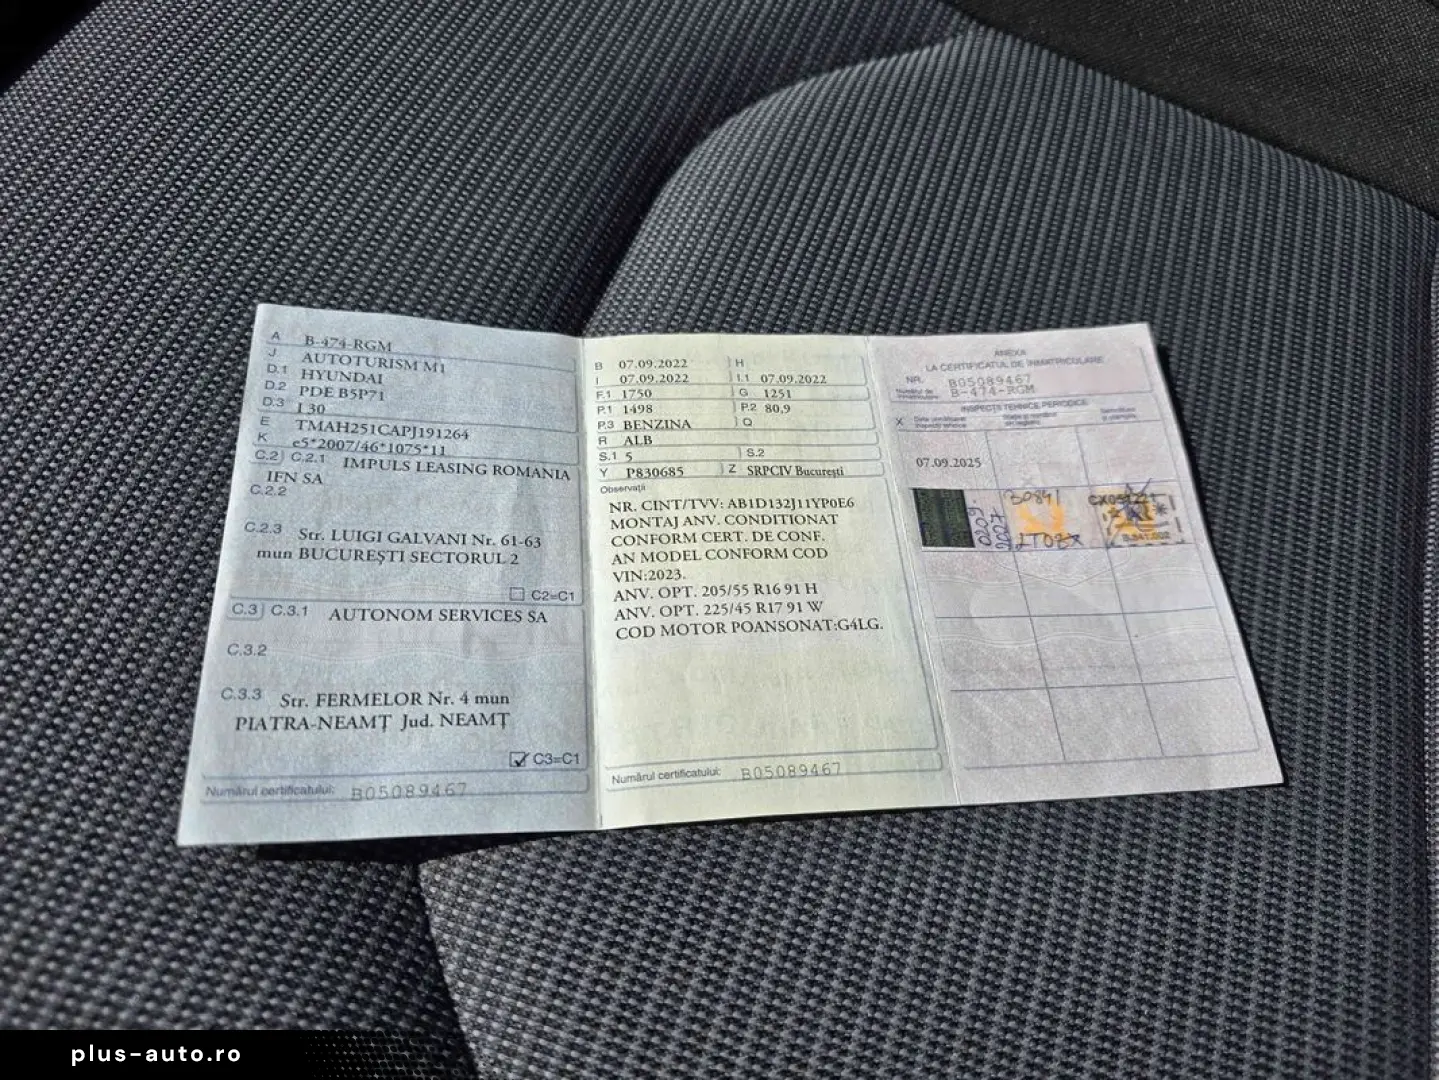 A B-474-RGM
J AUTOTURISM M1
D.1 HYUNDAI
D.2 PDE B5P71
D.3 I 30
E TMAH251CAPJ191264
K e5*2007/46*1075*11
C.2 C.2.1 IMPULS LEASING ROMANIA
IFN SA
C.2.2
C.2.3 Str. LUIGI GALVANI Nr. 61-63
mun BUCUREȘTI SECTORUL 2
C2=C1
C.3 C.3.1 AUTONOM SERVICES SA
C.3.2
C.3.3 Str. FERMELOR Nr. 4 mun
PIATRA-NEAMȚ Jud. NEAMȚ
C3=C1
Numărul certificatului: B05089467
B 07.09.2022 H
I 07.09.2022 I.1 07.09.2022
F.1 1750 G 1251
P.1 1498 P.2 80,9
P.3 BENZINA Q
R ALB
S.1 5 S.2
Y P830685 Z SRPCIV București
Observații
NR. CINT/TVV: AB1D132J11YP0E6
MONTAJ ANV. CONDITIONAT
CONFORM CERT. DE CONF.
AN MODEL CONFORM COD
VIN:2023.
ANV. OPT. 205/55 R16 91 H
ANV. OPT. 225/45 R17 91 W
COD MOTOR POANSONAT:G4LG.
Numărul certificatului: B05089467
ANEXA
LA CERTIFICATUL DE ÎNMATRICULARE
NR. B05089467
B-474-RGM
INSPECȚII TEHNICE PERIODICE
X
07.09.2025
plus-auto.ro